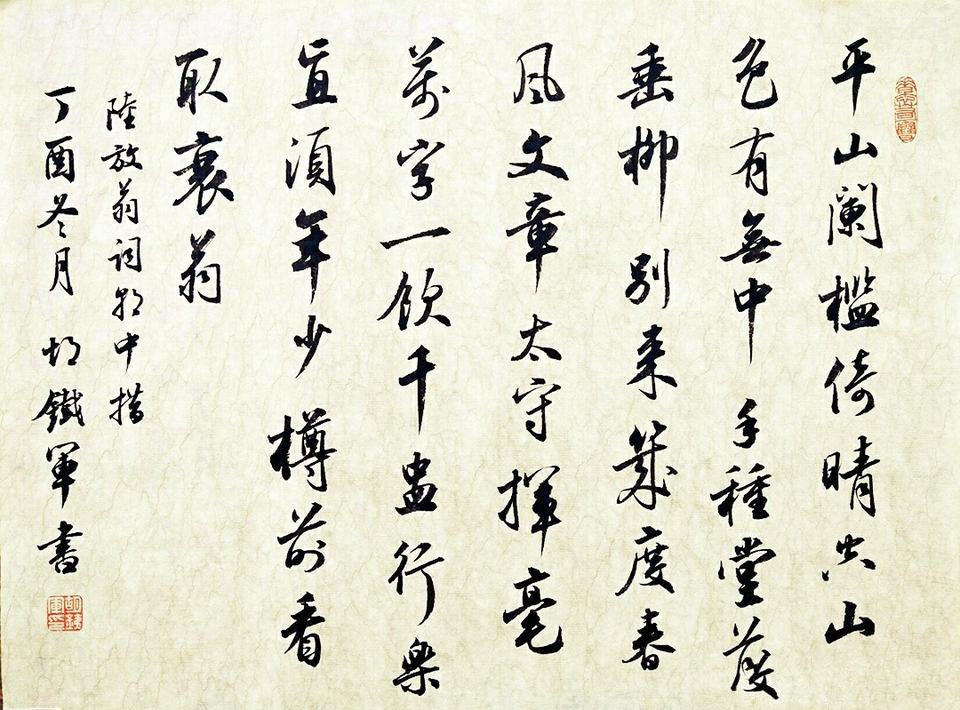 平山闌檻倚晴空山
色有無中手種堂
垂柳別來幾度春
風文章太守揮毫
萬字一飲千盅行樂
直須年少樽前看
取衰翁
陸放翁詞朝中措
丁酉冬月 胡鐵軍書